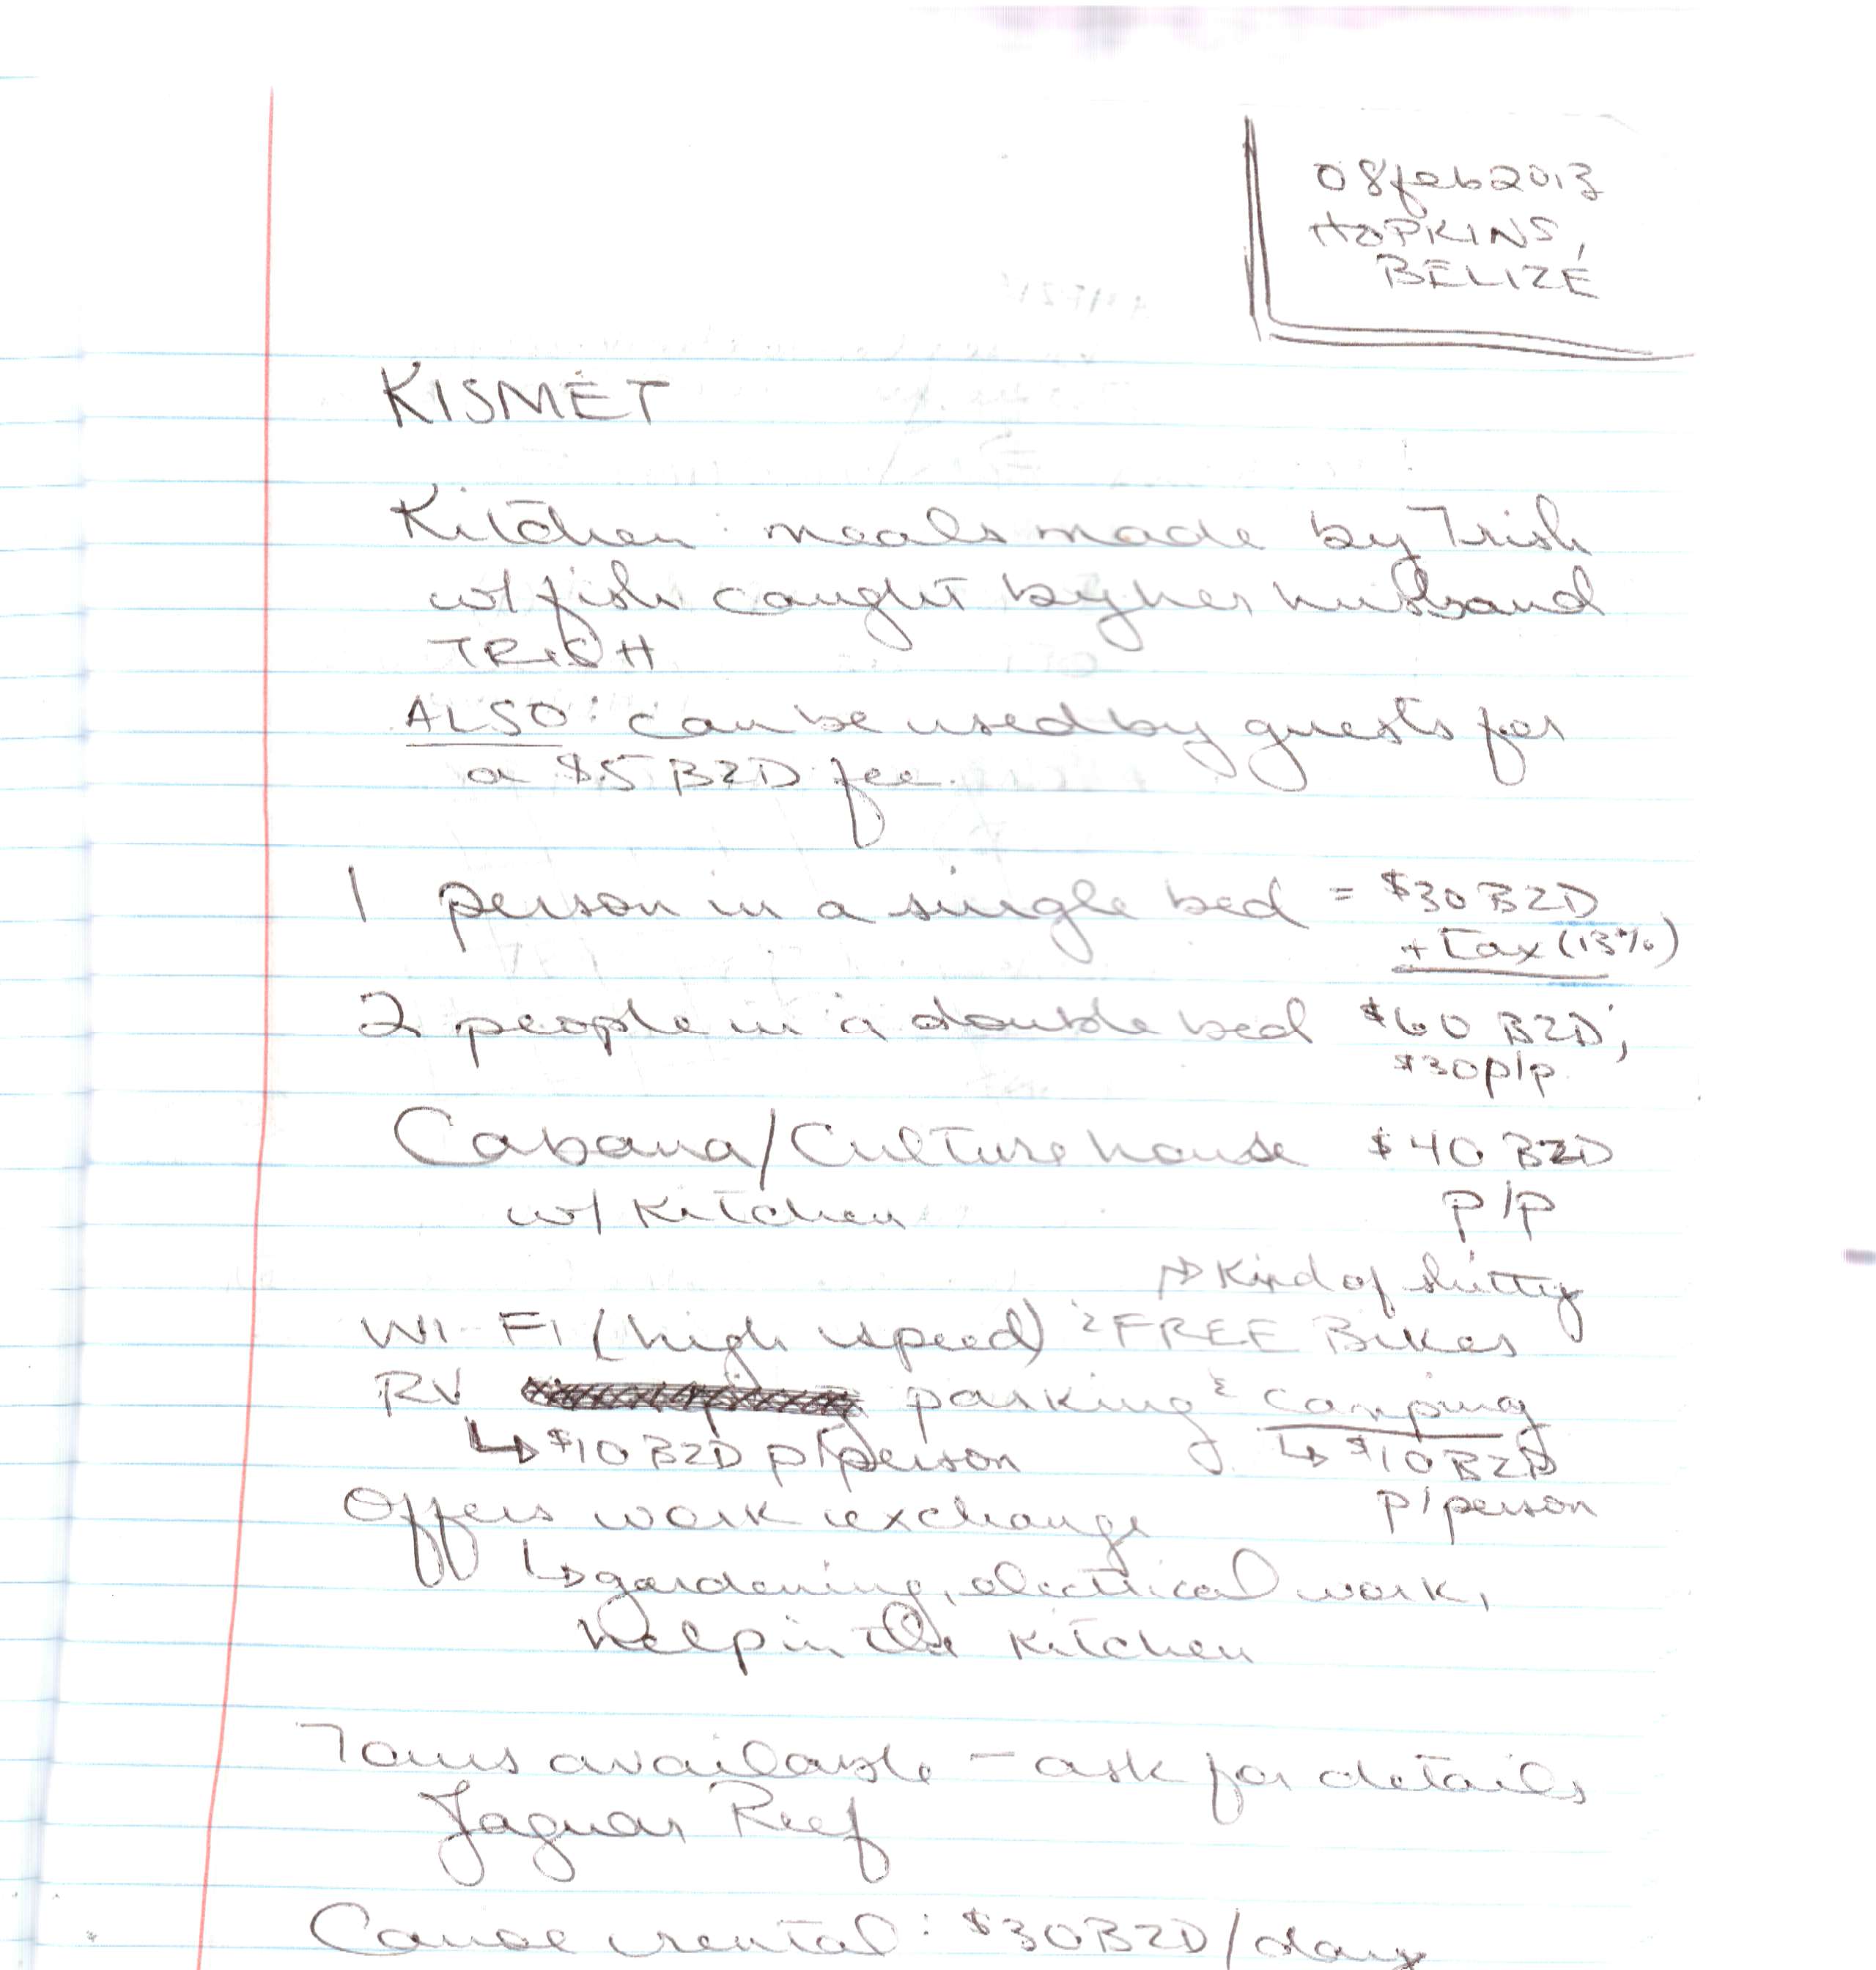 08feb2013
HOPKINS,
BELIZE
KISMET
Kitchen: meals made by Trish
w/ fish caught by her husband
TRISH
ALSO: can be used by guests for
a $5 BZD fee.
1 person in a single bed = $30 BZD
+ tax (13%)
2 people in a double bed $60 BZD;
$30 p/p
Cabana/Culture house $40 BZD
w/ kitchen p/p
↳ Kind of shitty
WI-FI (high speed) & FREE Bikes
RV parking & camping
↳ $10 BZD p/person ↳ $10 BZD
p/person
Offers work exchange
↳ gardening, electrical work,
help in the kitchen
Tours available – ask for details
Jaguar Reef
Canoe rental: $30 BZD/day